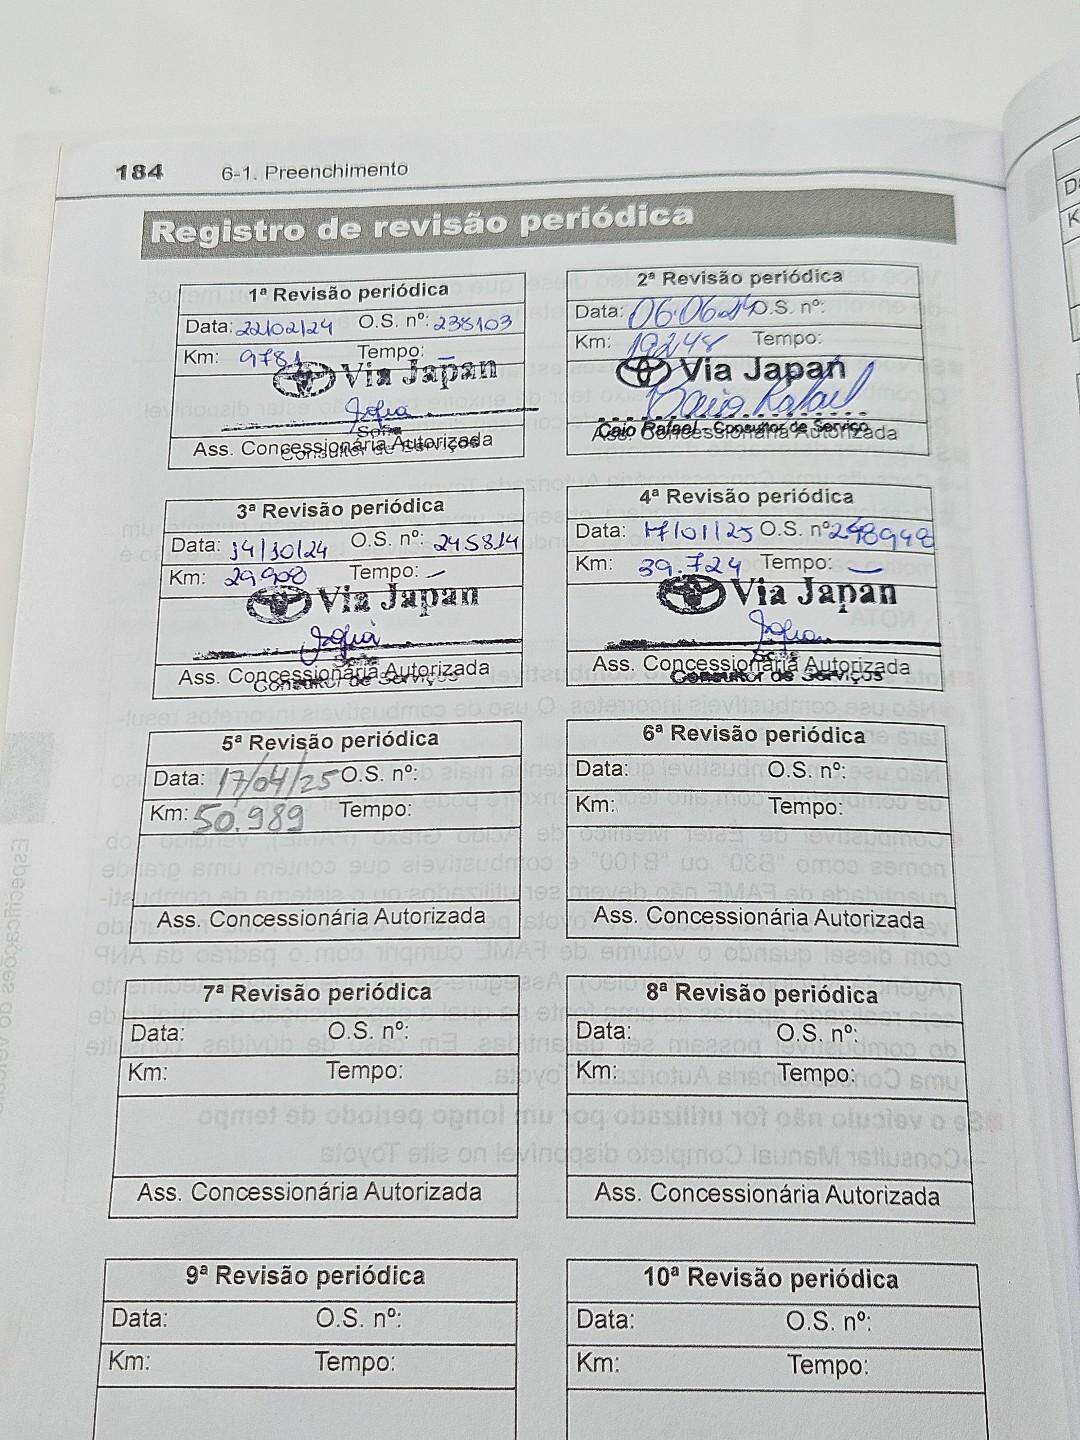 184 6-1. Preenchimento
Registro de revisão periódica
1ª Revisão periódica
Data: 22/02/24 O.S. nº: 238103
Km: 9781 Tempo: –
Via Japan
Sofia
Consultor de Serviços
Ass. Concessionária Autorizada
2ª Revisão periódica
Data: 06.06.24 O.S. nº:
Km: 19248 Tempo:
Via Japan
Caio Rafael
Caio Rafael - Consultor de Serviço
Ass. Concessionária Autorizada
3ª Revisão periódica
Data: 14/10/24 O.S. nº: 245814
Km: 29.908 Tempo: –
Via Japan
Sofia
Ass. Concessionária Autorizada
Consultor de Serviços
4ª Revisão periódica
Data: 17/01/25 O.S. nº 248948
Km: 39.724 Tempo: –
Via Japan
Sofia
Ass. Concessionária Autorizada
Consultor de Serviços
5ª Revisão periódica
Data: 17/04/25 O.S. nº:
Km: 50.989 Tempo:
Ass. Concessionária Autorizada
6ª Revisão periódica
Data: O.S. nº:
Km: Tempo:
Ass. Concessionária Autorizada
7ª Revisão periódica
Data: O.S. nº:
Km: Tempo:
Ass. Concessionária Autorizada
8ª Revisão periódica
Data: O.S. nº:
Km: Tempo:
Ass. Concessionária Autorizada
9ª Revisão periódica
Data: O.S. nº:
Km: Tempo:
10ª Revisão periódica
Data: O.S. nº:
Km: Tempo: